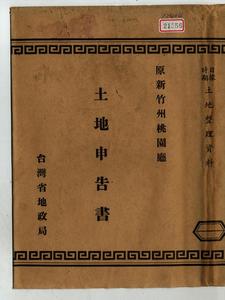 21556
日據時期 土地整理資料
原新竹州桃園廳
土地申告書
台灣省地政局